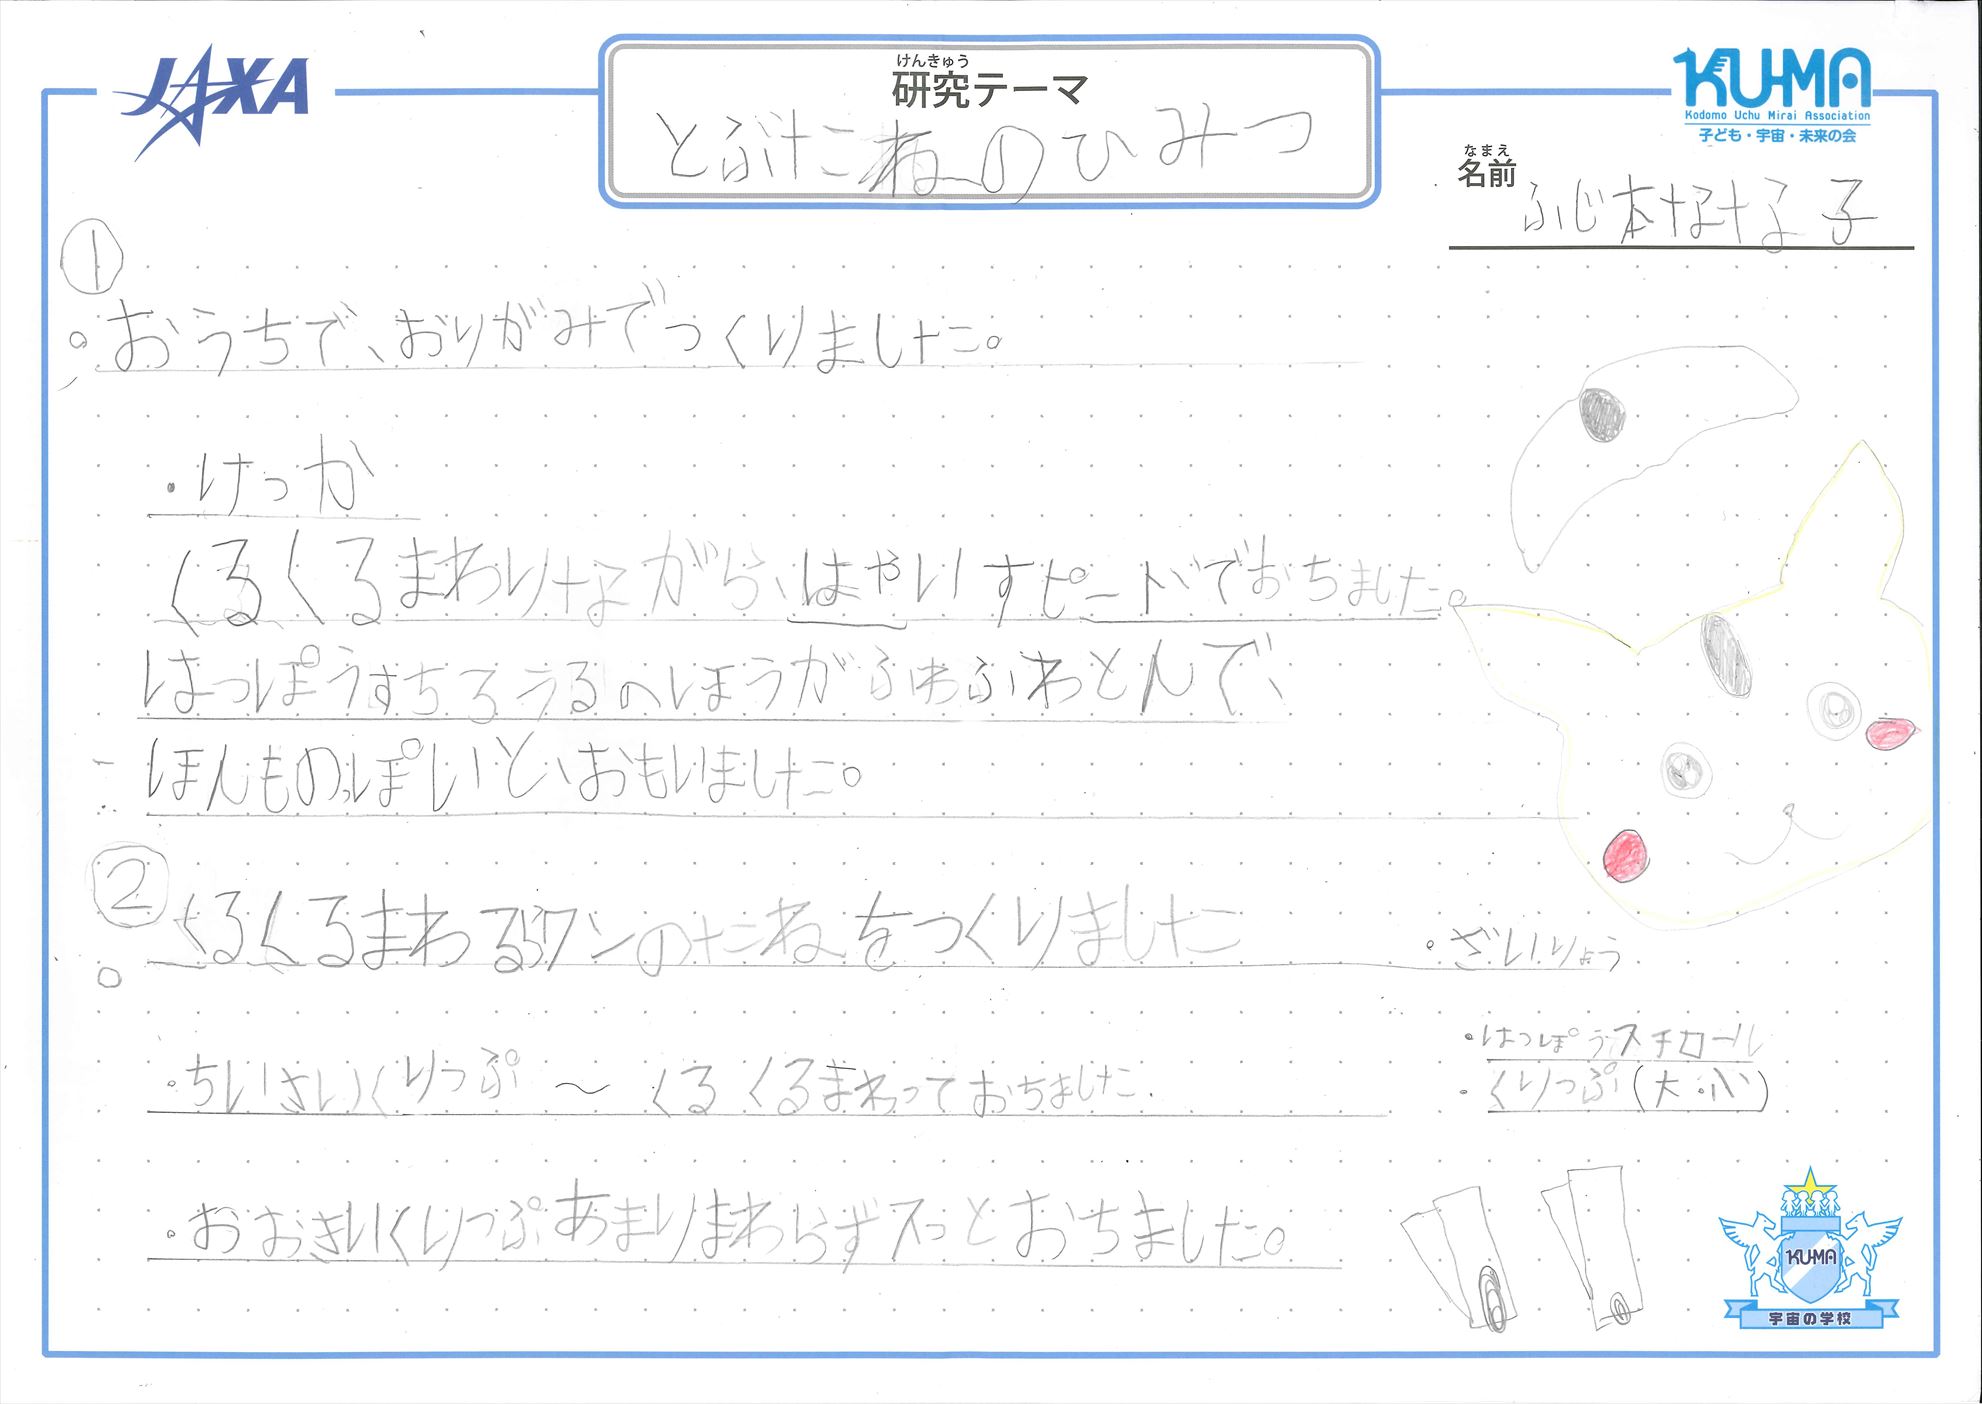 JAXA
けんきゅう
研究テーマ
とぶたねのひみつ
KU-MA
Kodomo Uchu Mirai Association
子ども・宇宙・未来の会
なまえ
名前
ふじ本ななな子
①
。おうちで、おりがみでつくりました。
・けっか
くるくるまわりながら、はやいすピードでおちました。
はっぽうすちろうるのほうがふわふわとんで、
ほんものっぽいと、おもいました。
②
くるくるまわるラワンのたねをつくりました
・ざいりょう
・はっぽうスチロール
・くりっぷ(大・小)
・ちいさいくりっぷ〜くるくるまわっておちました.
・おおきいくりっぷあまりまわらずスっとおちました。
KU-MA
宇宙の学校